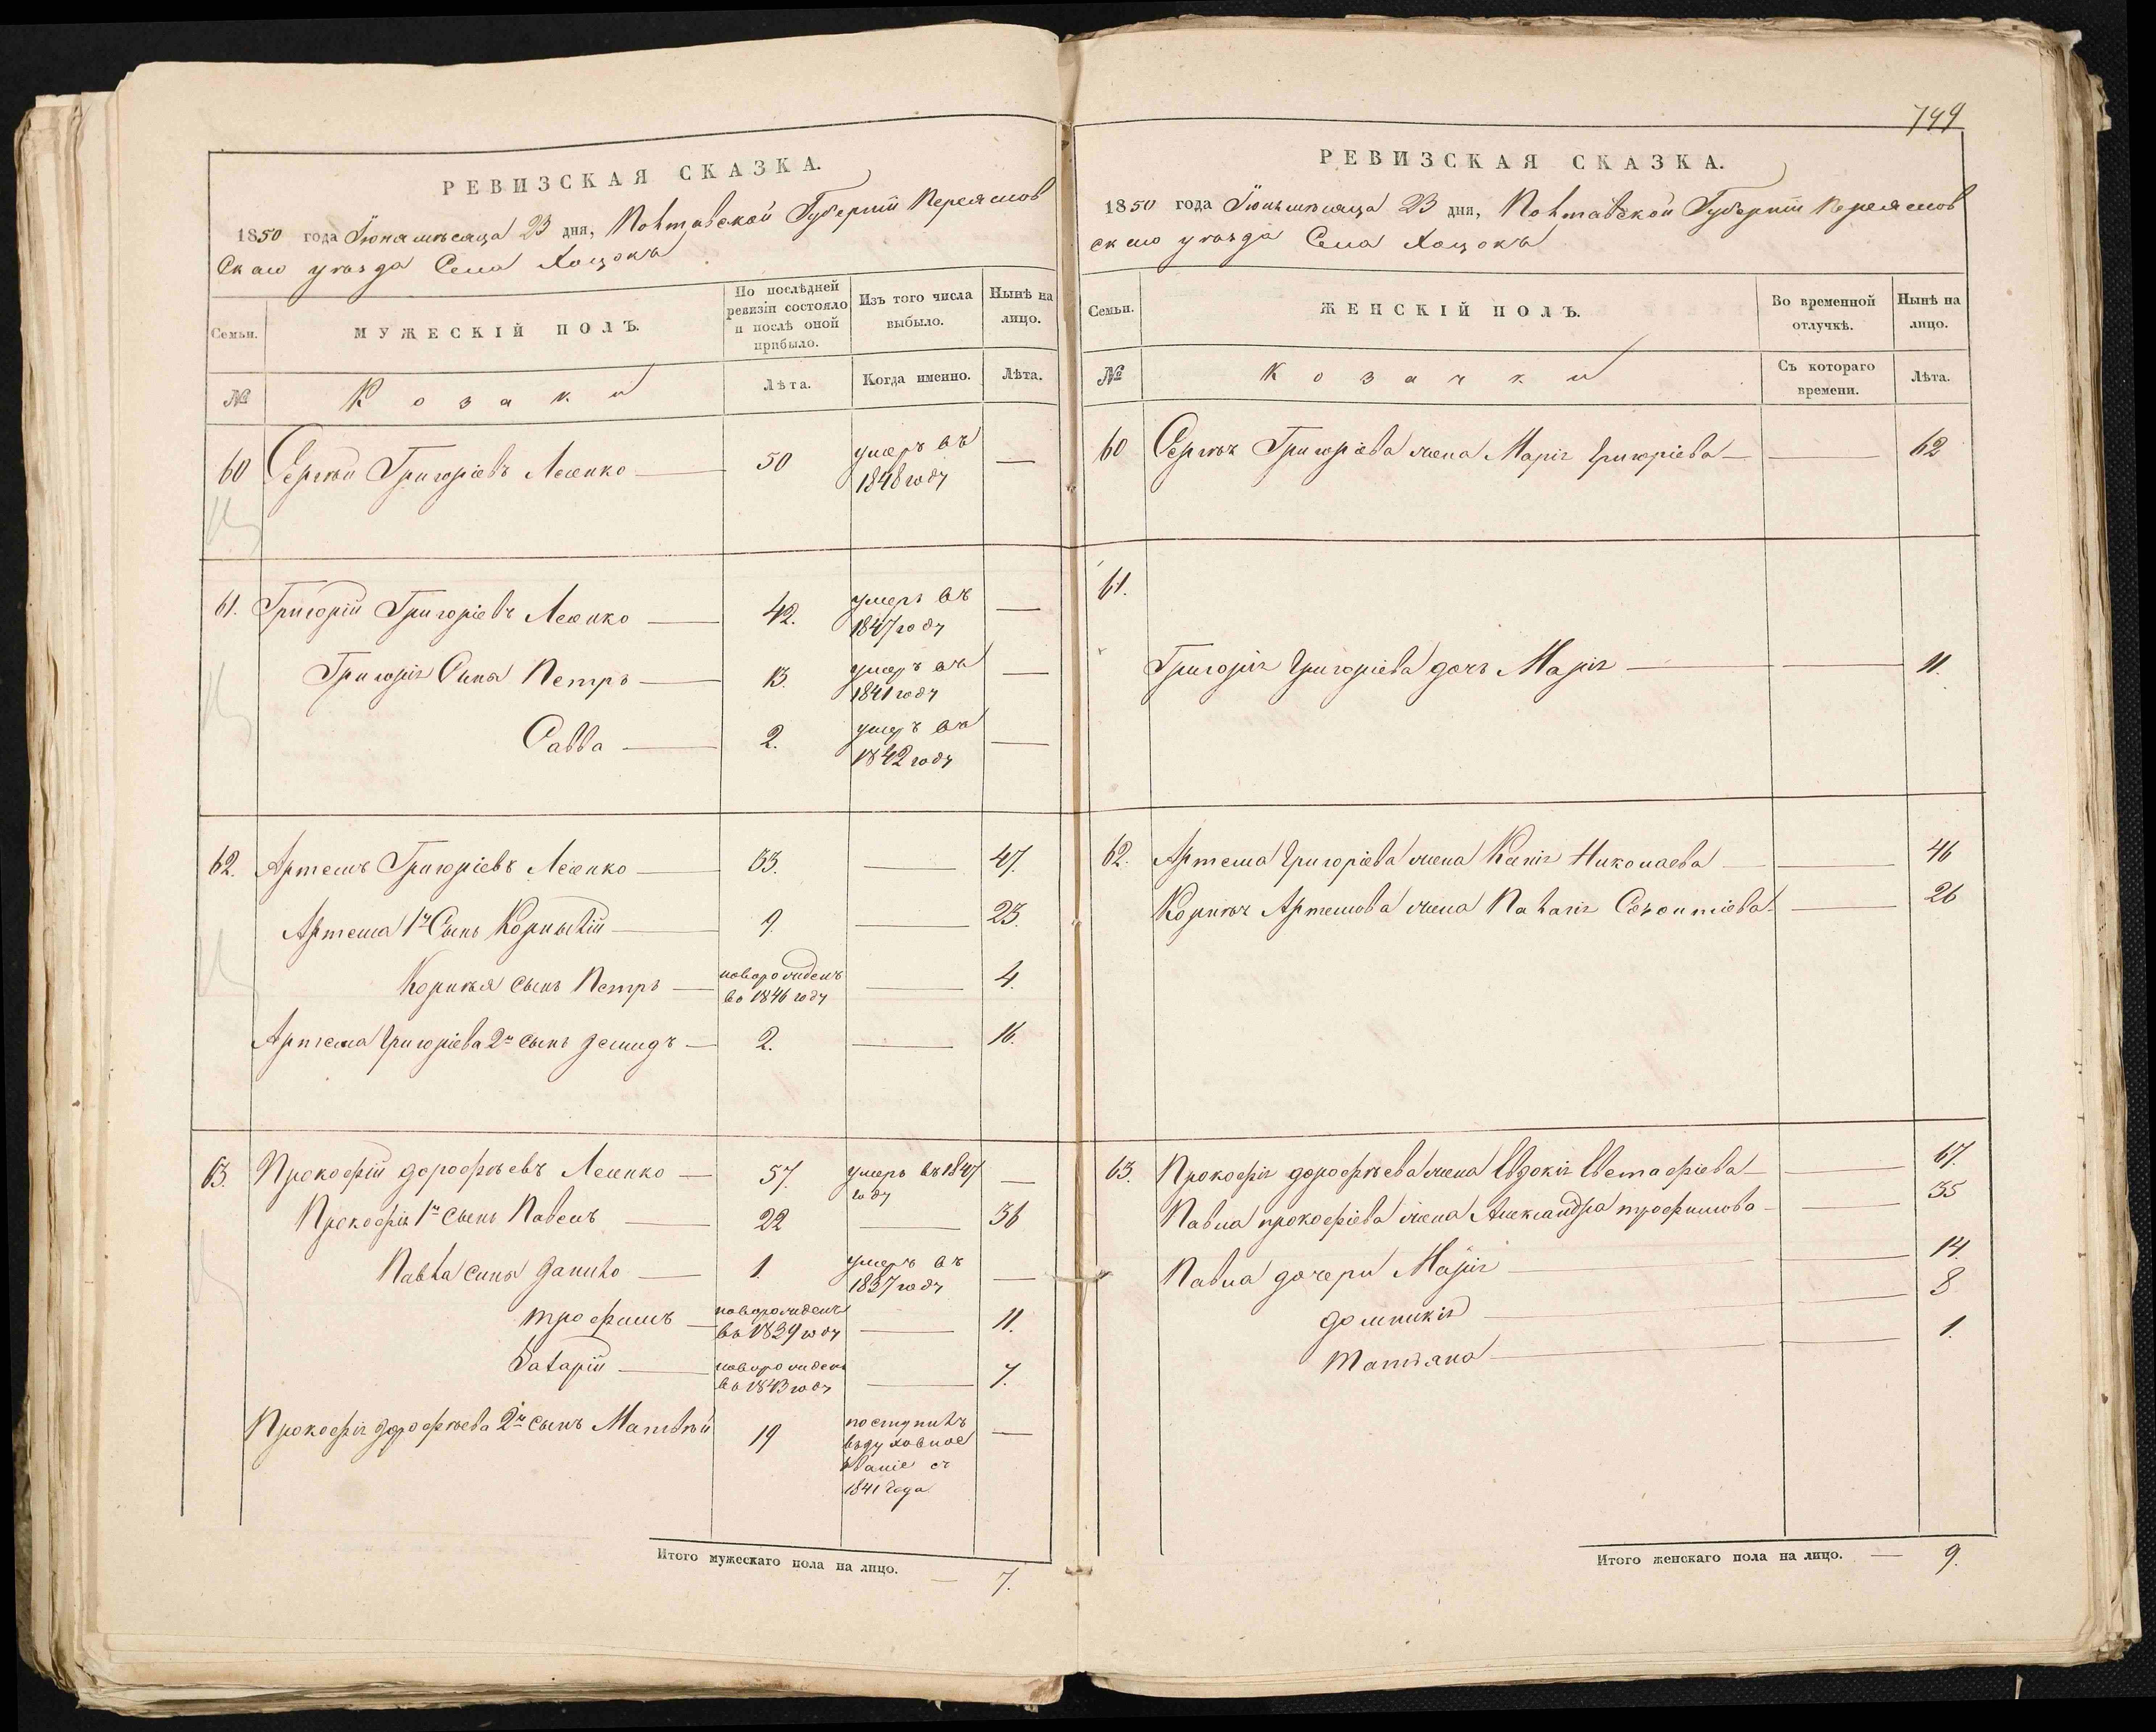 РЕВИЗСКАЯ СКАЗКА.
1850 года Іюня мѣсяца 23 дня, Полтавской Губерніи Переяслов
скаго уѣзда Села Хоцокъ
Семьи.
МУЖЕСКІЙ ПОЛЪ.
По послѣдней
ревизіи состояло
и послѣ оной
прибыло.
Изъ того числа
выбыло.
Нынѣ на
лицо.
№
Козаки
Лѣта.
Когда именно.
Лѣта.
60 Сергѣй Григоріевъ Лесенко — 50 умеръ въ —
1848 году
61. Григорій Григоріевъ Лесенко — 42. умеръ въ —
1847 году
Григорія Сына Петръ — 13. умеръ въ —
1841 году
Савва — 2. умеръ въ —
1842 году
62. Артемъ Григоріевъ Лесенко — 33. — 47.
Артема 1й Сынъ Корнылій — 9. — 23.
Корнѣя сынъ Петръ — новорожденъ — 4.
во 1846 году
Артема Григоріева 2й сынъ Демидъ — 2. — 16.
63. Прокофій Дорофѣевъ Лесенко — 57. умеръ въ 1847 —
году
Прокофія 1й сынъ Павелъ — 22 — 36
Павла сына Данило — 1. умеръ въ —
1837 году
Трофимъ — новорожденъ — 11.
въ 1839 году
Захарій — новорожденъ — 7.
въ 1843 году
Прокофія Дорофѣева 2й сынъ Матвѣй 19 поступилъ —
въ духовное
званіе съ
1841 года
Итого мужескаго пола на лицо. — 7.
749
РЕВИЗСКАЯ СКАЗКА.
1850 года Іюнь мѣсяца 23 дня, Полтавской Губерніи Переяслов
скаго уѣзда Села Хоцокъ
Семьи.
ЖЕНСКІЙ ПОЛЪ.
Во временной
отлучкѣ.
Нынѣ на
лицо.
№
Козачки
Съ котораго
времени.
Лѣта.
60 Сергѣя Григоріева жена Марія Григоріева — — 62
61.
Григорія Григоріева дочь Марія — — 11.
62. Артема Григоріева жена Ксенія Николаева — 46
Корнѣя Артемова жена Палагія Леонтіева — 26
63. Прокофія Дорофѣева жена Евдокія Евстафіева — — 67.
Павла Прокофіева жена Александра Трофимова — — 35
Павла дочери Марія — — 14.
Домникія — — 8
Татіана — — 1.
Итого женскаго пола на лицо. — 9.